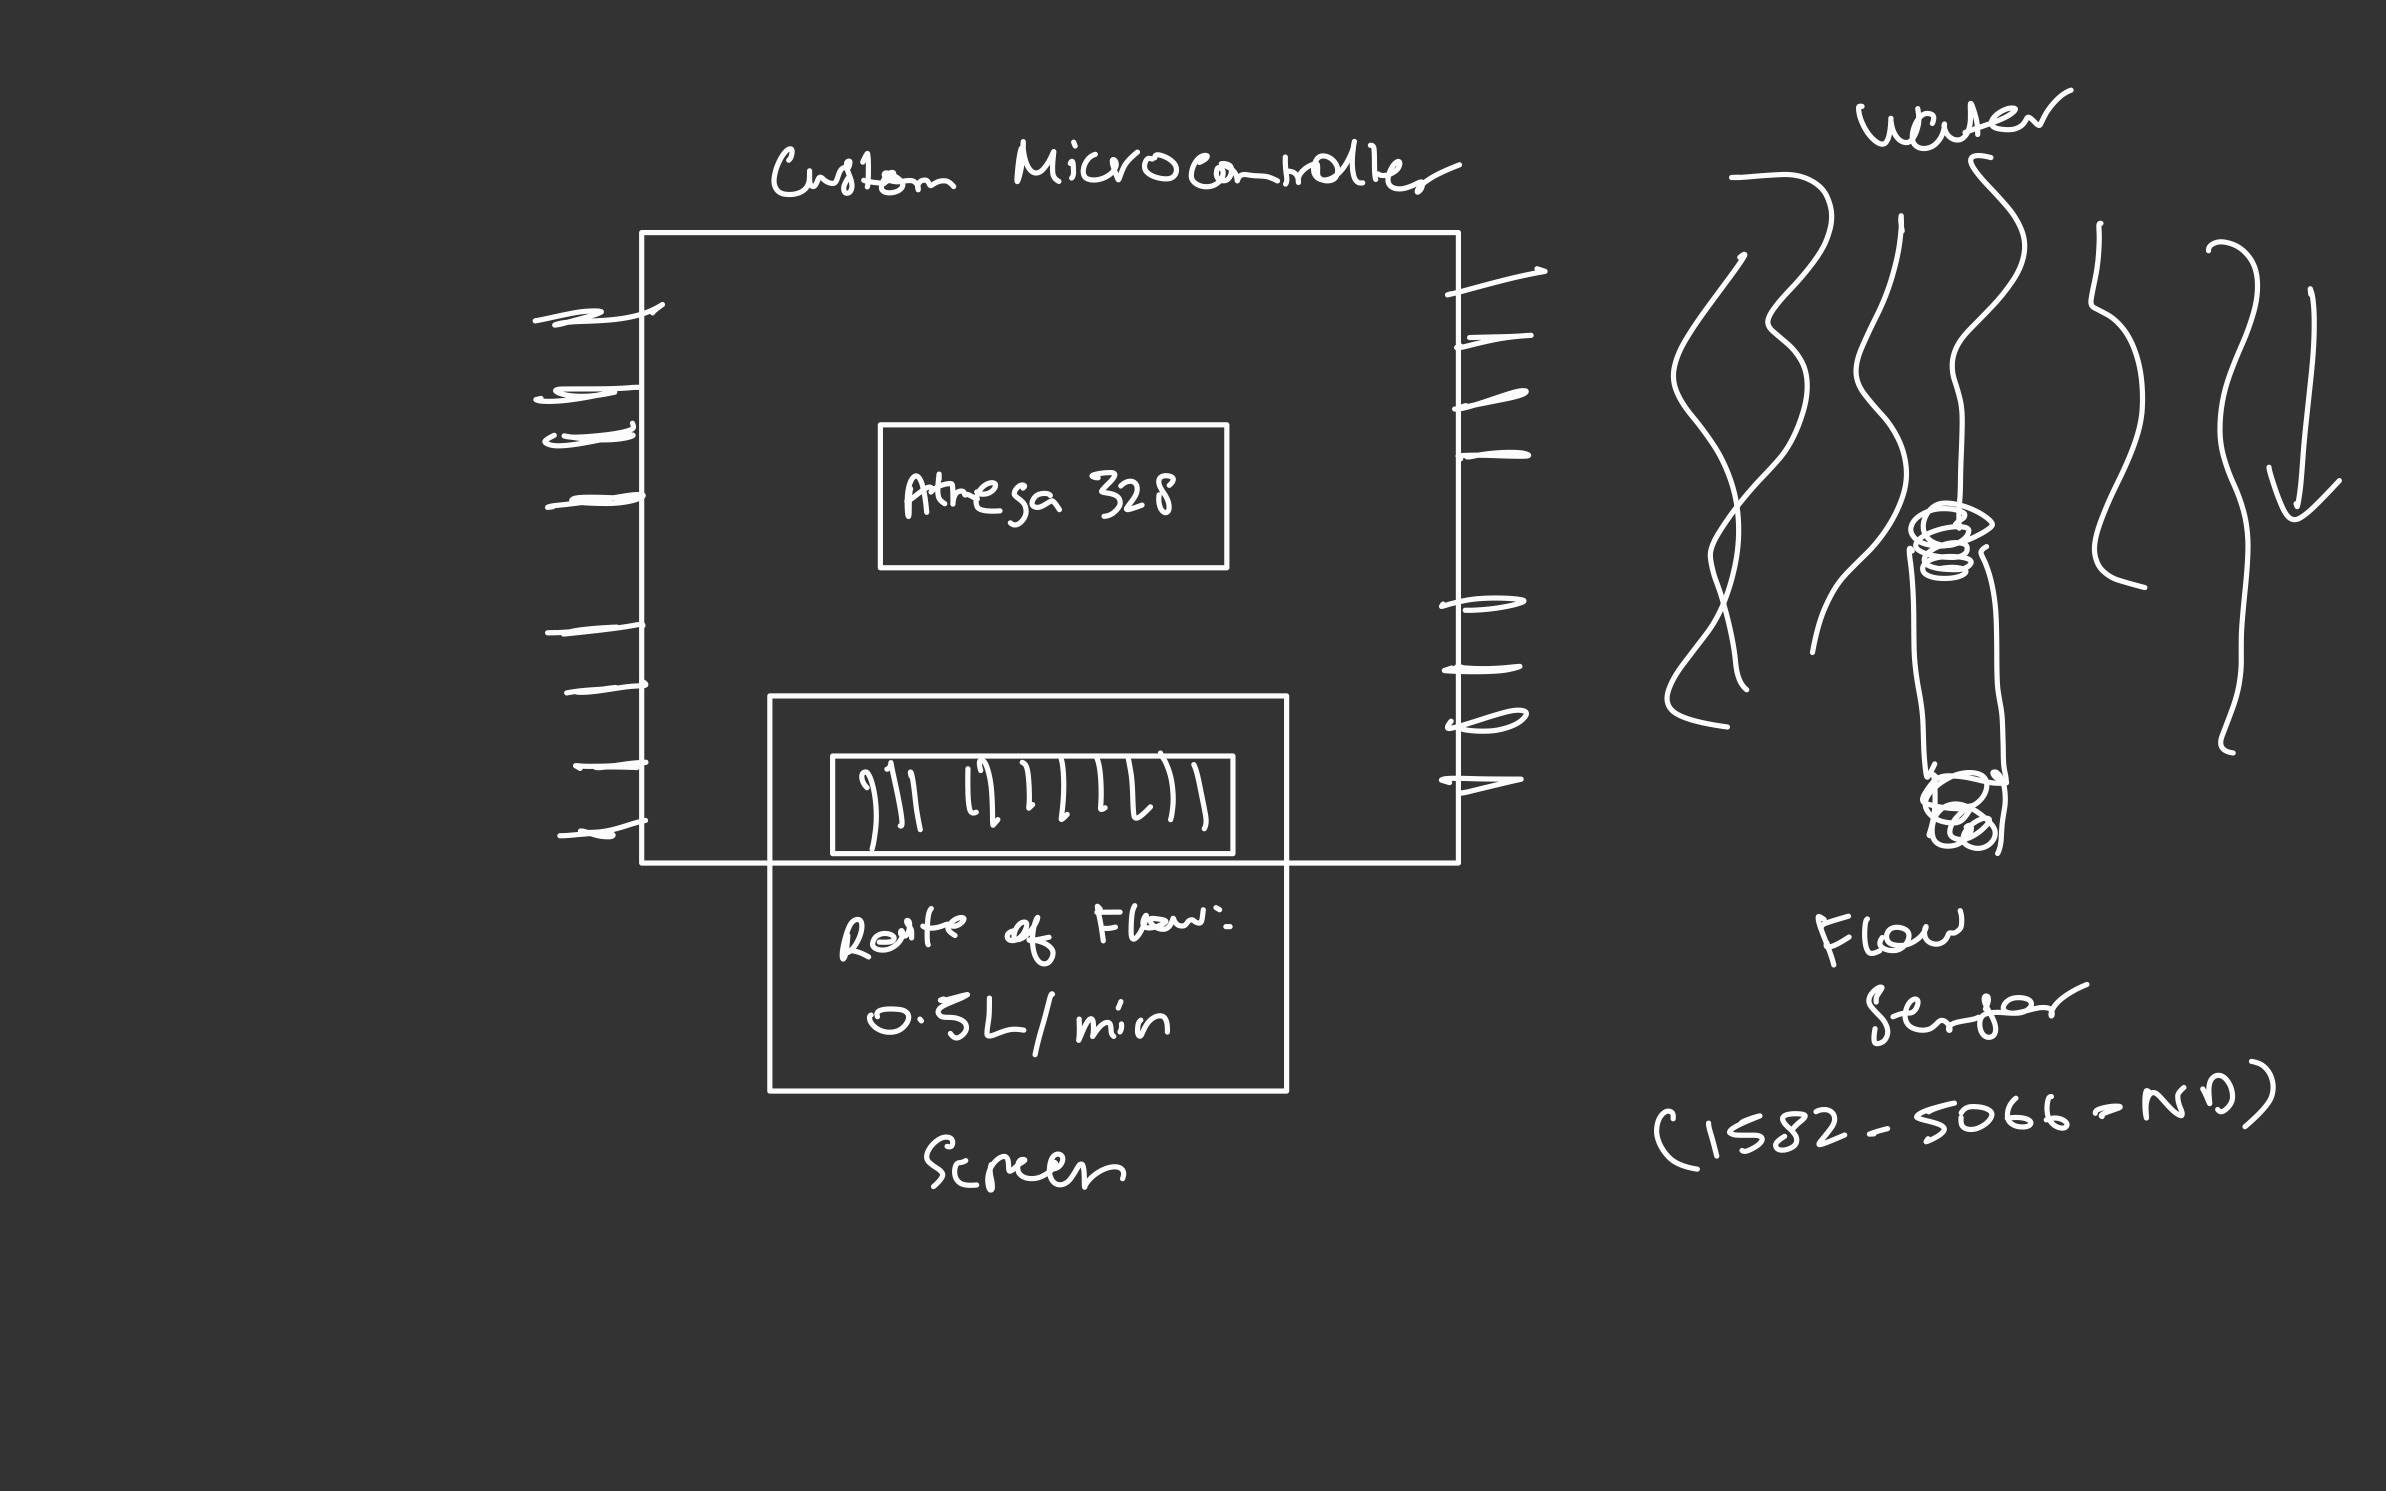 Custom Microcontroller
Atmega 328
Rate of Flow:
0.5L/min
Screen
Water
Flow
Sensor
(1582-5066-ND)